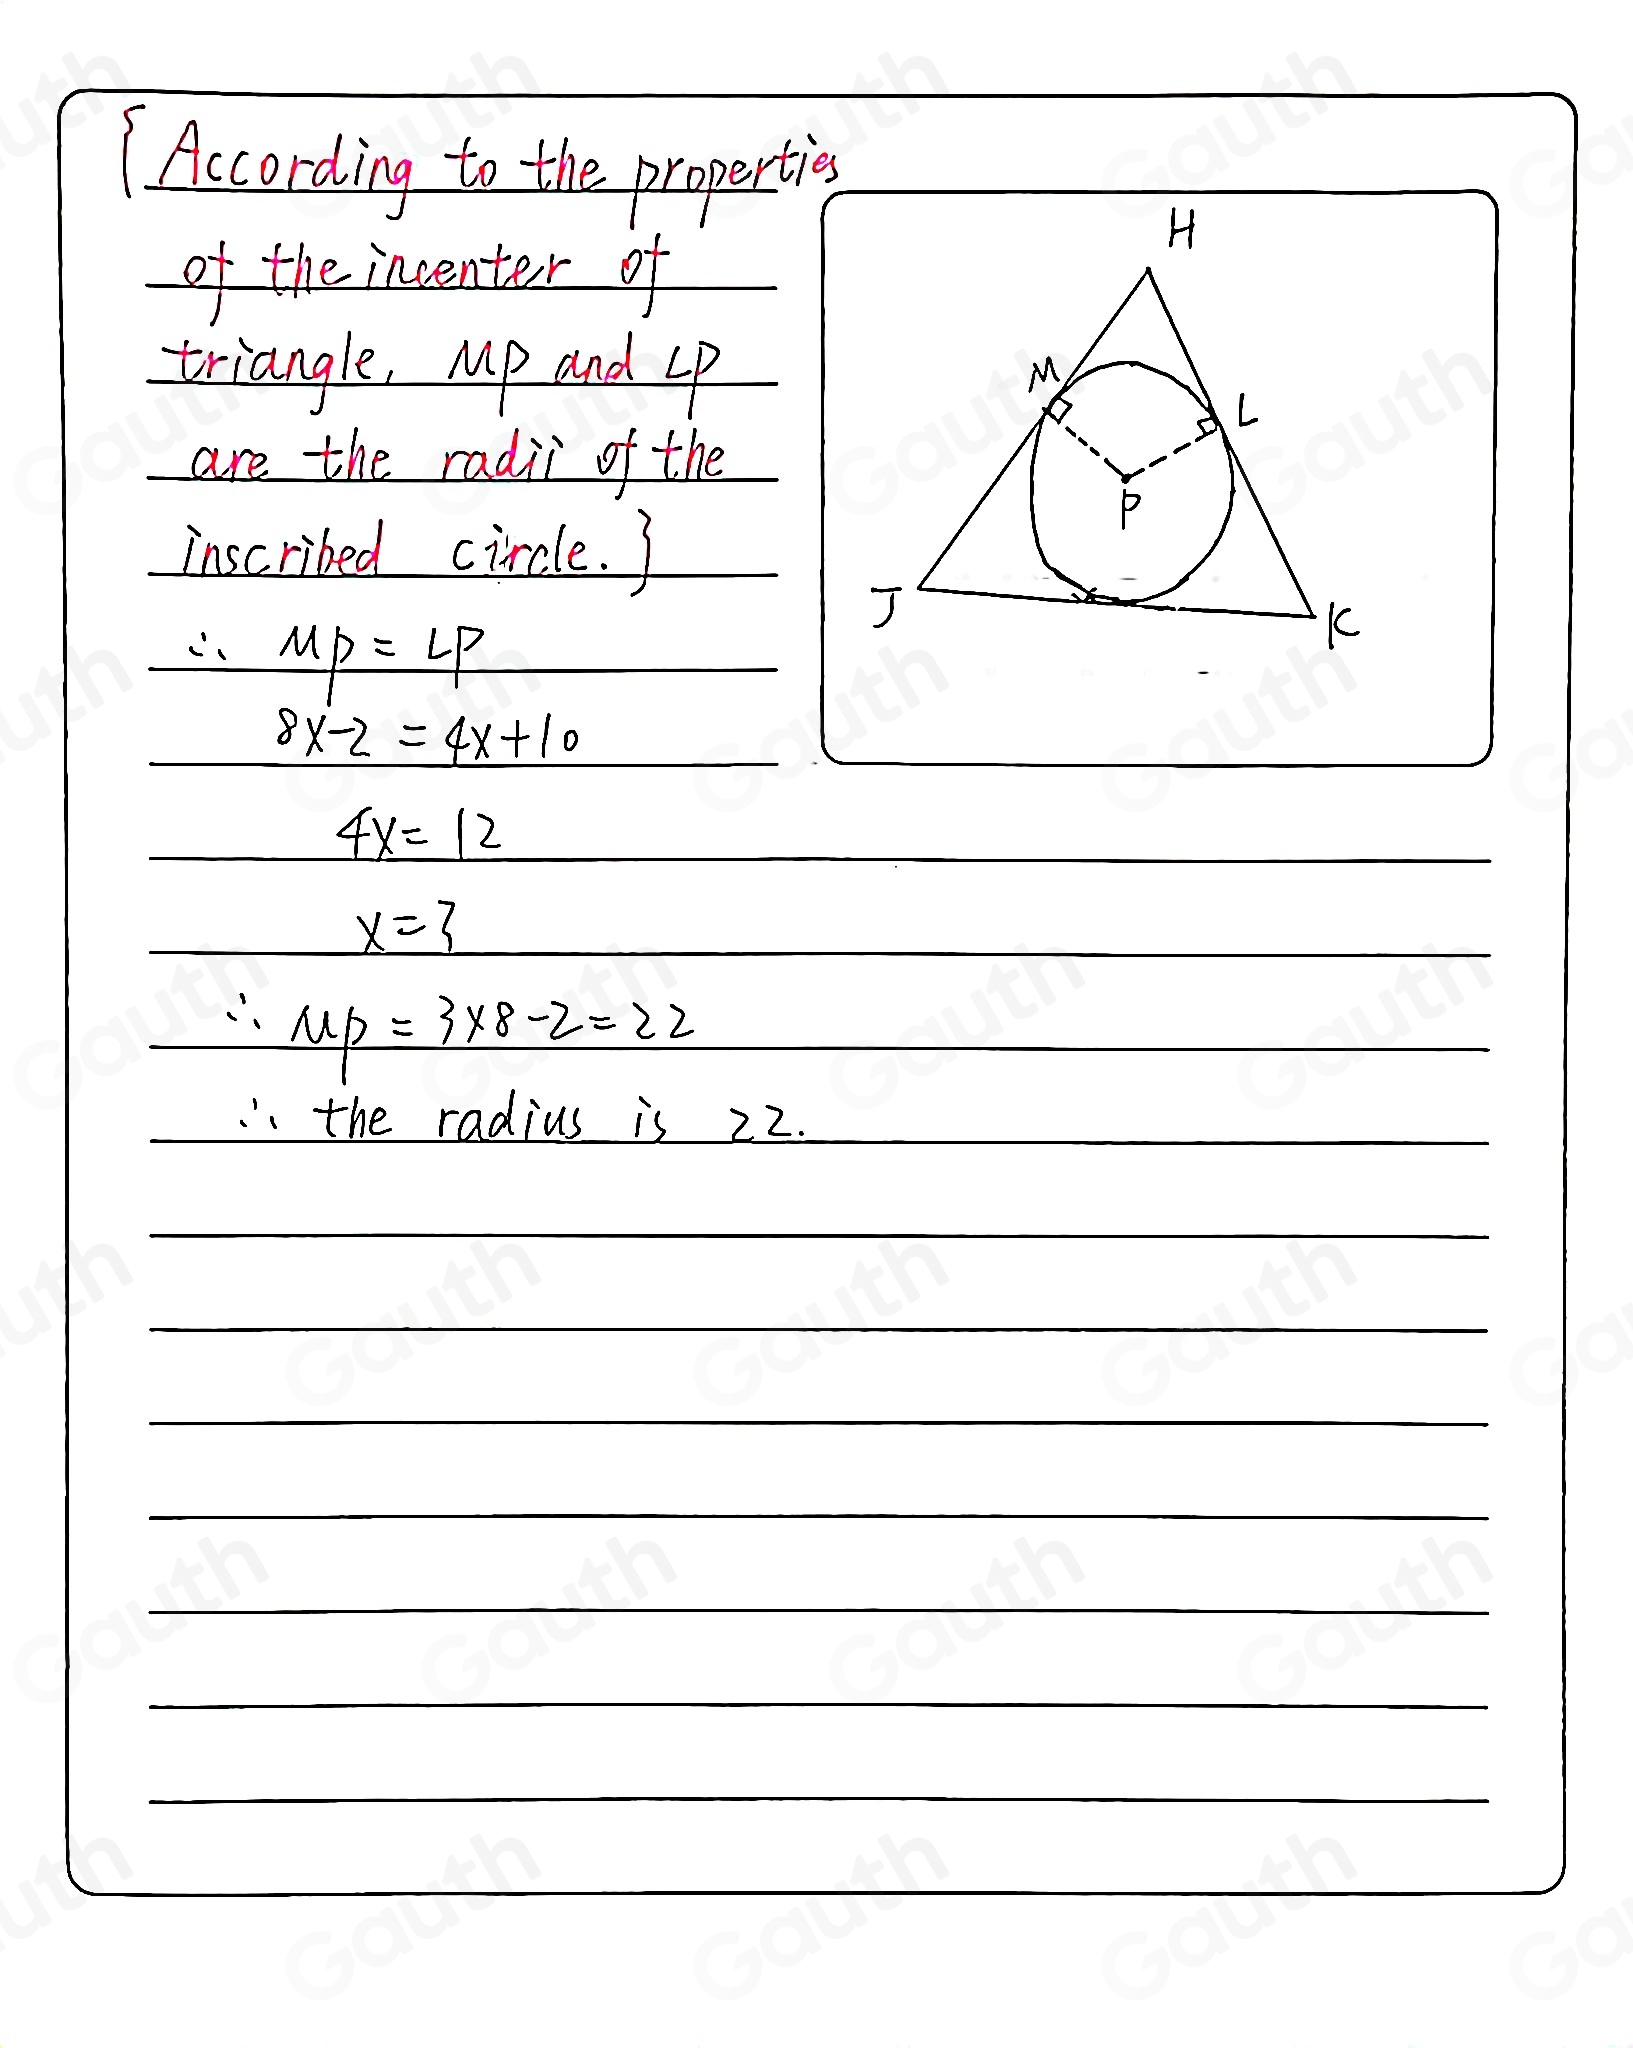 {According to the properties
of the incenter of
triangle, MP and LP
are the radii of the
inscribed circle.}
∴ MP = LP
8x-2 = 4x+10
4x = 12
x = 3
∴ MP = 3×8-2=22
∴ the radius is 22.
H
M
L
P
J
K
Gauth